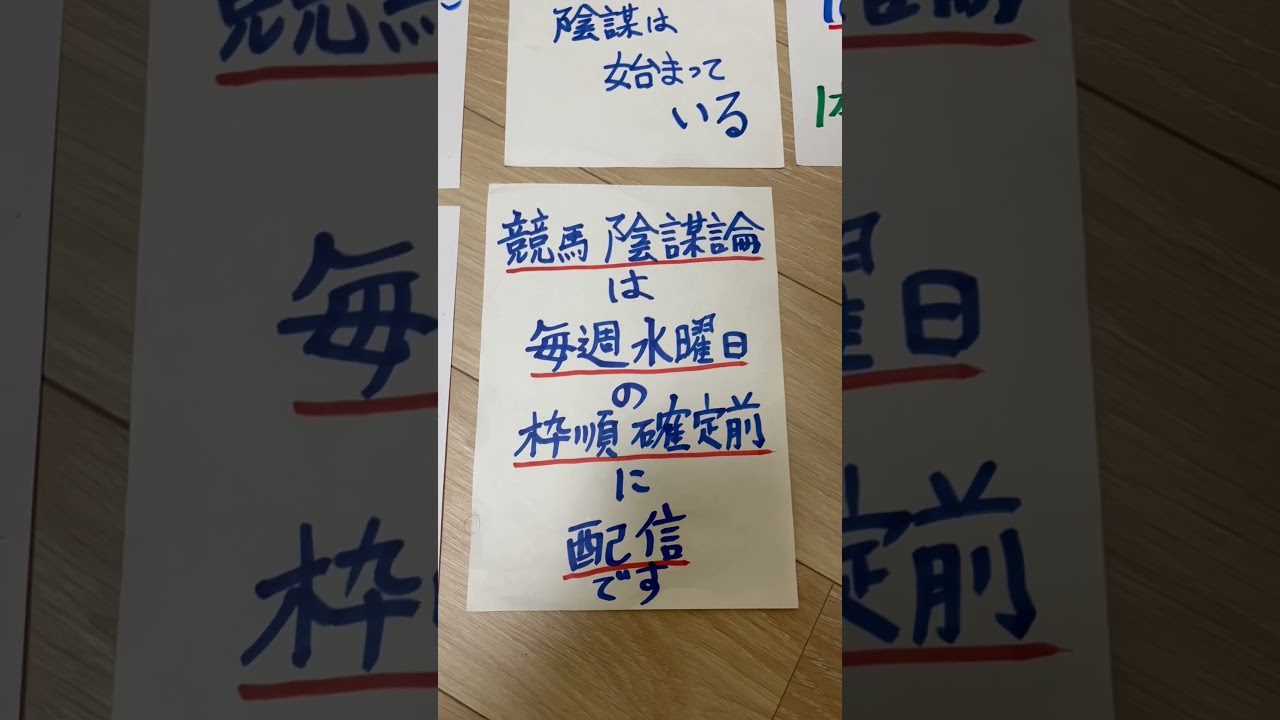 陰謀は
始まって
いる
競馬 陰謀論
は
毎週 水曜日
の
枠順 確定前
に
配信
です